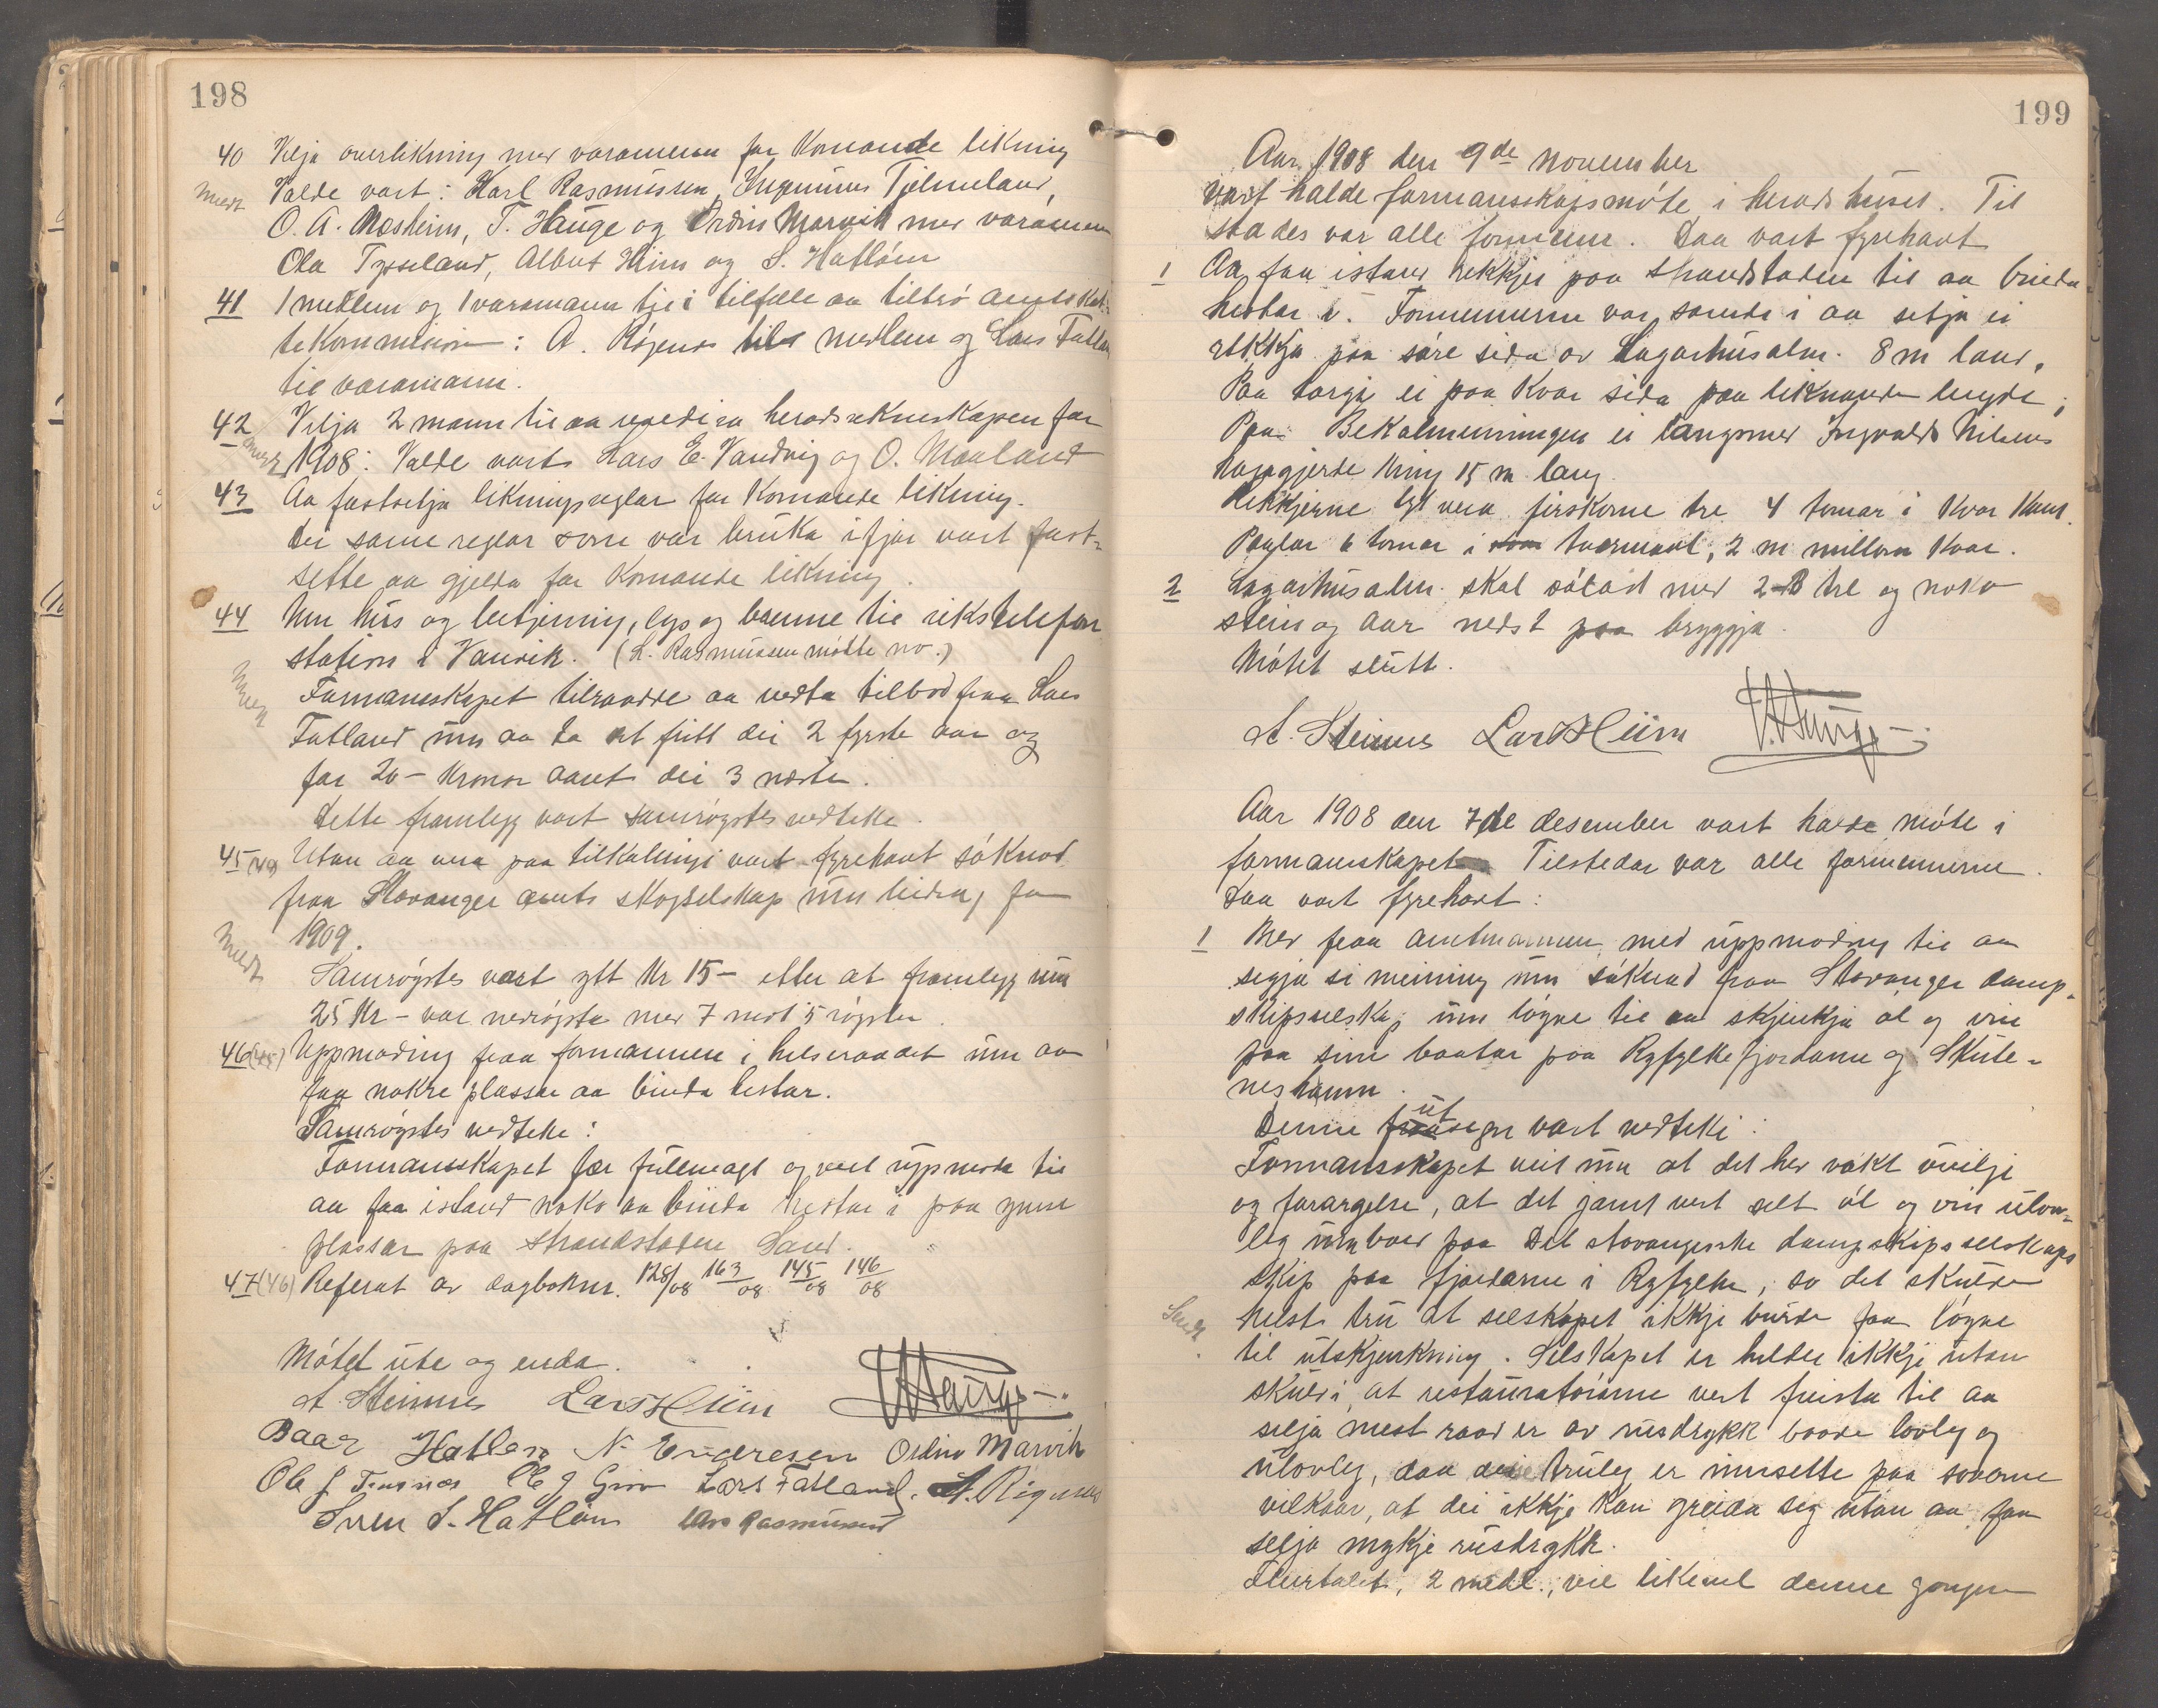 198
40 Velja overlikning med varamenn for Komande likning
Medt Valde vart: Karl Rasmussen, Ingemund Tjelmeland,
O. A. Mosheim, T. Hauge og Ordin Marvik med varamenn
Ola Tysseland, Albert Hiim og S. Hatløen
41 1 medlem og 1 varamann til i tilfelle aa tiltrø amtsskat-
tekommission: A. Røgenes til medlem og Lars Fatland
til varamann.
42 Velja 2 mann til aa revidera heradsrekneskapen for
1908: Valde vart Lars E. Vandvig og O. Moeland
43 Aa fastsetja likningsreglar for Komande likning.
Dei same reglar som var bruka ifjor vart fast-
sette aa gjelda for Komande likning.
44 Um hus og betjening, lys og brenne til rikstelefon
station i Vanvik. (L. Rasmussen møtte no.)
Formannskapet tilraadde aa vedta tilbod fraa Lars
Fatland um aa ta det fritt dei 2 fyrste aar og
for 20 – Kronor aaret dei 3 næste.
Dette framlegg vart samrøystes vedteke.
45 (44) Utan aa vera paa tilkallingi vart fyrehavt søknad
fraa Stavanger amts skogselskap um bidrag for
1909.
Medt
Samrøystes vart ytt Kr 15 – etter at framlegg um
25 Kr – var nedrøysta med 7 mot 5 røyster.
46 (45) Uppmoding fraa formannen i helseraadet um aa
faa nokre plassar aa binda hestar.
Samrøystes vedteke:
Formannskapet fær fullmagt og vert uppmoda til
aa faa istand noko aa binda hestar i paa ymse
plassar paa strandstaden Sand.
47 (46) Referat av dagbøkur. 128/08 163/08 145/08 146/08
Møtet ute og enda.
A. Steinnes Lars Hiim T. Hauge
Baar Hatlen N. Endresen Ordin Marvik
Ole J. Lars Fatland. A. Røgenes
Sven S. Hatløen Lars Rasmussen
199
Aar 1908 den 9de november
vart halde formannsskapsmøte i heradshuset. Til
stades var alle formenn. Daa vart fyrehavt
1 Aa faa istand rekkjer paa strandstaden til aa binda
hestar i. Formennerne var samde i aa setja ei
rekkja paa søre sida av Lagarhusalm. 8 m land,
Paa torgje ei paa Kvar sida paa liknande lengde;
Paa Bekalmenningen ei langsmed Ingvald Nilsens
hagegjerde Kring 15 m. lang.
Rekkjerne lyt vera firskorne tre 4 tomar i Kvar Kant.
Paalar 6 tomar i tvermaal, 2 m millom Kvar.
2 Lagarhusalm. skal med 2 tre og noko
stein og aur nedst paa bryggja.
Møtet slutt.
A. Steinnes Lars Hiim T. Hauge
Aar 1908 den 7de desember vart halde møte i
formannskapet. Tilstedar var alle formennerne.
Daa vart fyrehavt:
1 Brev fraa amtmannen med uppmoding til aa
segja si meining um søknad fraa Stavanger damp-
skipsselskap um løyve til aa skjenkja øl og vin
paa sine baatar paa Ryfylkefjordane og Skute-
neshamn.
Denne utsegn vart vedteki:
Formannsskapet veit um at det her vakt uvilje
og forargelse, at det jamt vert selt øl og vin ulov-
leg umbord paa Det stavangerske dampskipsselskaps
skip paa fjordane i Ryfylke, so det skulde
helst tru at selskapet ikkje burde faa løyve
til utskjenkning. Selskapet er heller ikkje utan
skuld i at restauratørarne vert freista til aa
selja mest raad er av rusdrykk baade lovleg og
ulovleg, daa dei truleg er innsette paa sovorne
vilkaar, at dei ikkje Kan greida seg utan aa faa
selja mykje rusdrykk.
Fleirtalet, 2 medl., vil likevel denne gongen